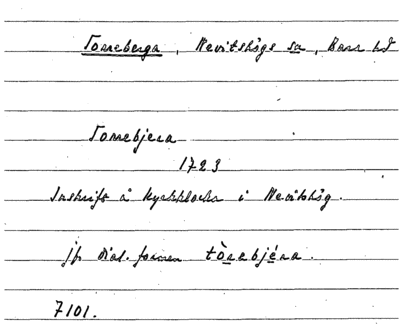 Torreberga, Nevitshögs sn, Bara hd
Torrebjera
1723
Inskrift å kyrkklocka i Nevitshög.
jfr dial. formen tòrebjéra.
7101.